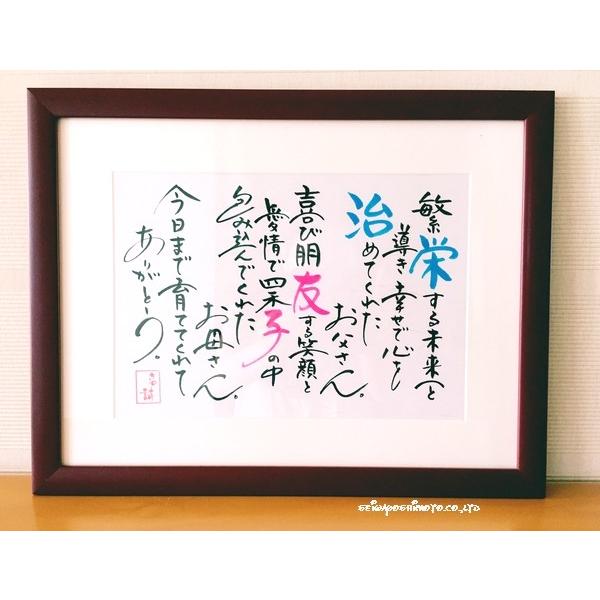 繁栄する未来へと
導き幸せで心を
治めてくれた
お父さん。
喜び朋友する笑顔と
愛情で四禾子の中
包み込んでくれた
お母さん。
今日まで育ててくれて
ありがとう。
SEIGAYOSHIMOTO.CO.,LTD